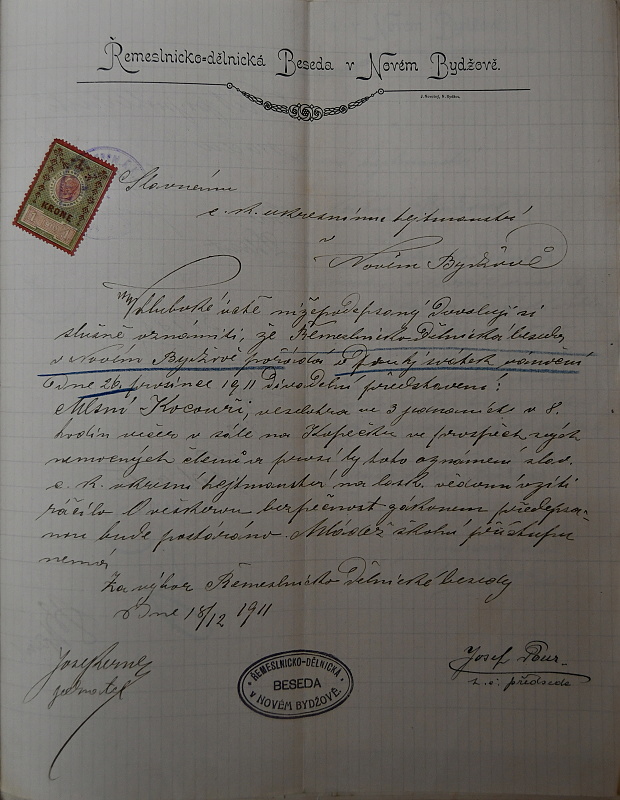 Řemeslnicko-dělnická Beseda v Novém Bydžově.
J. Novotný, N. Bydžov.
1 KRONE 1
Slavnému
c. k. okresnímu hejtmanství
v Novém Bydžově
V hluboké úctě nížepodepsaný dovoluji si
slušně oznámiti, že Řemeslnicko Dělnická beseda
v Novém Bydžově pořádá na druhý svátek vánoční
dne 26. prosince 1911 divadelní představení:
Mlsní Kocouři, veselohra ve 3 jednáních v 8.
hodin večer v sále na Kopečku ve prospěch svých
nemocných členů a prosí by toho oznámení slav.
c. k. okresní hejtmanství na lask. vědomí vzíti
ráčilo. O veškerou bezpečnost zákonem předepsa-
nou bude postaráno. Mládež školní přístupu
nemá.
Za výbor Řemeslnicko Dělnické besedy
Dne 18/12 1911
Josef
jednatel
ŘEMESLNICKO-DĚLNICKÁ
BESEDA
v NOVÉM BYDŽOVĚ.
Josef
t. č. předseda